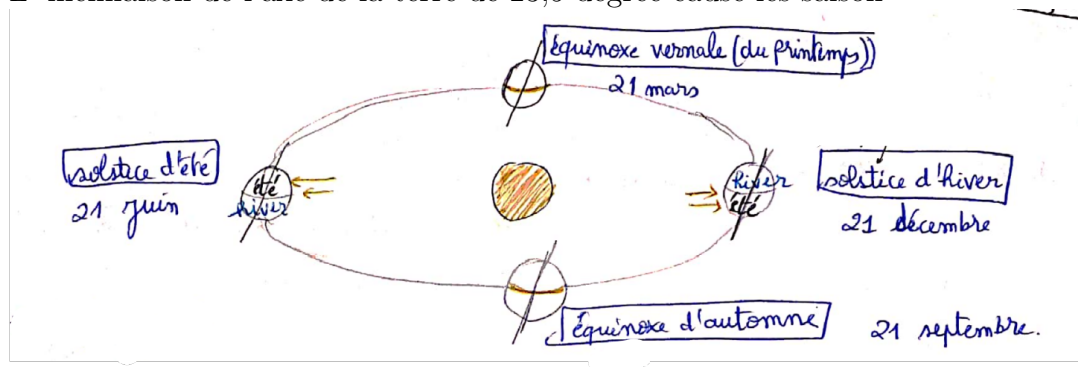 équinoxe vernale (du printemps))
21 mars
solstice d'été
21 juin
été
hiver
hiver
été
solstice d'hiver
21 décembre
équinoxe d'automne
21 septembre.